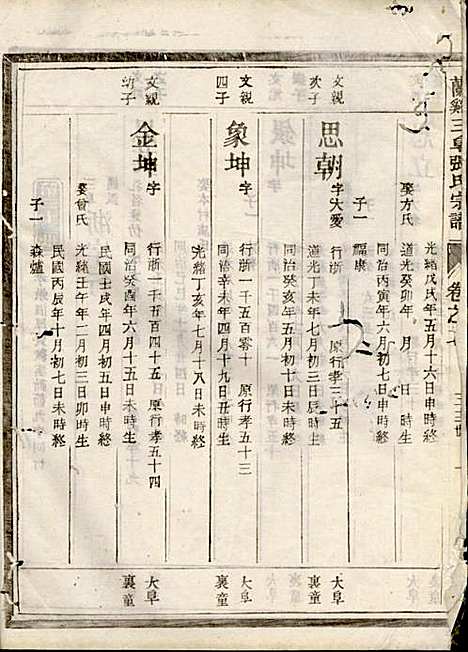 蘭谿三阜張氏宗譜
卷之
光緒戊戌年五月十六日申時終
娶方氏 道光癸卯年 月 日 時生
同治丙寅年六月初七日申時終
子一 福康
文親次子
思朝 字大愛 行浙 一 原行孝三十五
道光丁未年七月初三日辰時生
同治癸亥年五月初十日未時終
大阜裏童
文親四子
象坤 字 行浙一千五百零十 原行孝五十三
同治辛未年四月十九日丑時生
光緒丁亥年七月十八日未時終
大阜裏童
文親幼子
金坤 字 行浙一千五百四十五 原行孝五十四
同治癸酉年六月十五日未時生
民國壬戌年四月初五日申時終
大阜裏童
娶曾氏 光緒壬午年二月初三日卯時生
民國丙辰年十月初七日未時終
子一 森爐